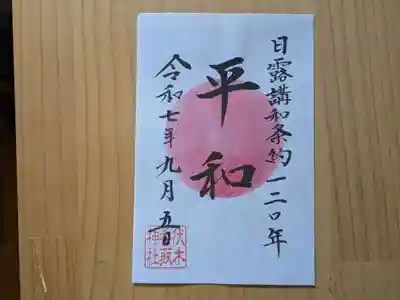 日露講和条約一二〇年
平和
令和七年九月五日